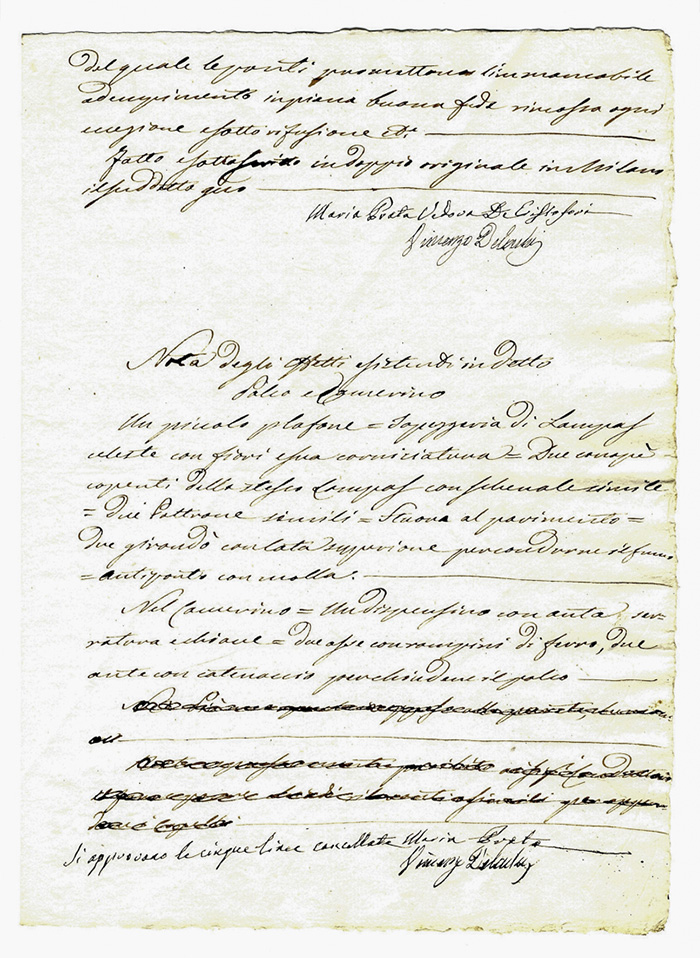 del quale le parti promettono l'immancabile
adempimento in piena buona fede rimossa ogni
eccezione e sotto rifusione &c.ª
Fatto e sottoscritto in doppio originale in Milano
il suddetto gno
Maria Prata Vedova De Cristofori
Vincenzo
Nota degli effetti esistenti in detto
Palco e Camerino
Un piccolo plafone = Tapezzeria di Lampas
celeste con fiori e sua corniciatura = Due canapè
coperti dello stesso Lampas con schenale simile
= due Poltrone simili = Stuova al pavimento =
Due girandò con lata superiore per condurne il fumo
= antiporto con molla.
Nel Camerino = Un dispensino con anta, ser-
ratura e chiave = due asse con rampini di ferro, due
ante con catenaccio per chiudere il palco
Si approvano le cinque linee cancellate Maria Prata
Vincenzo